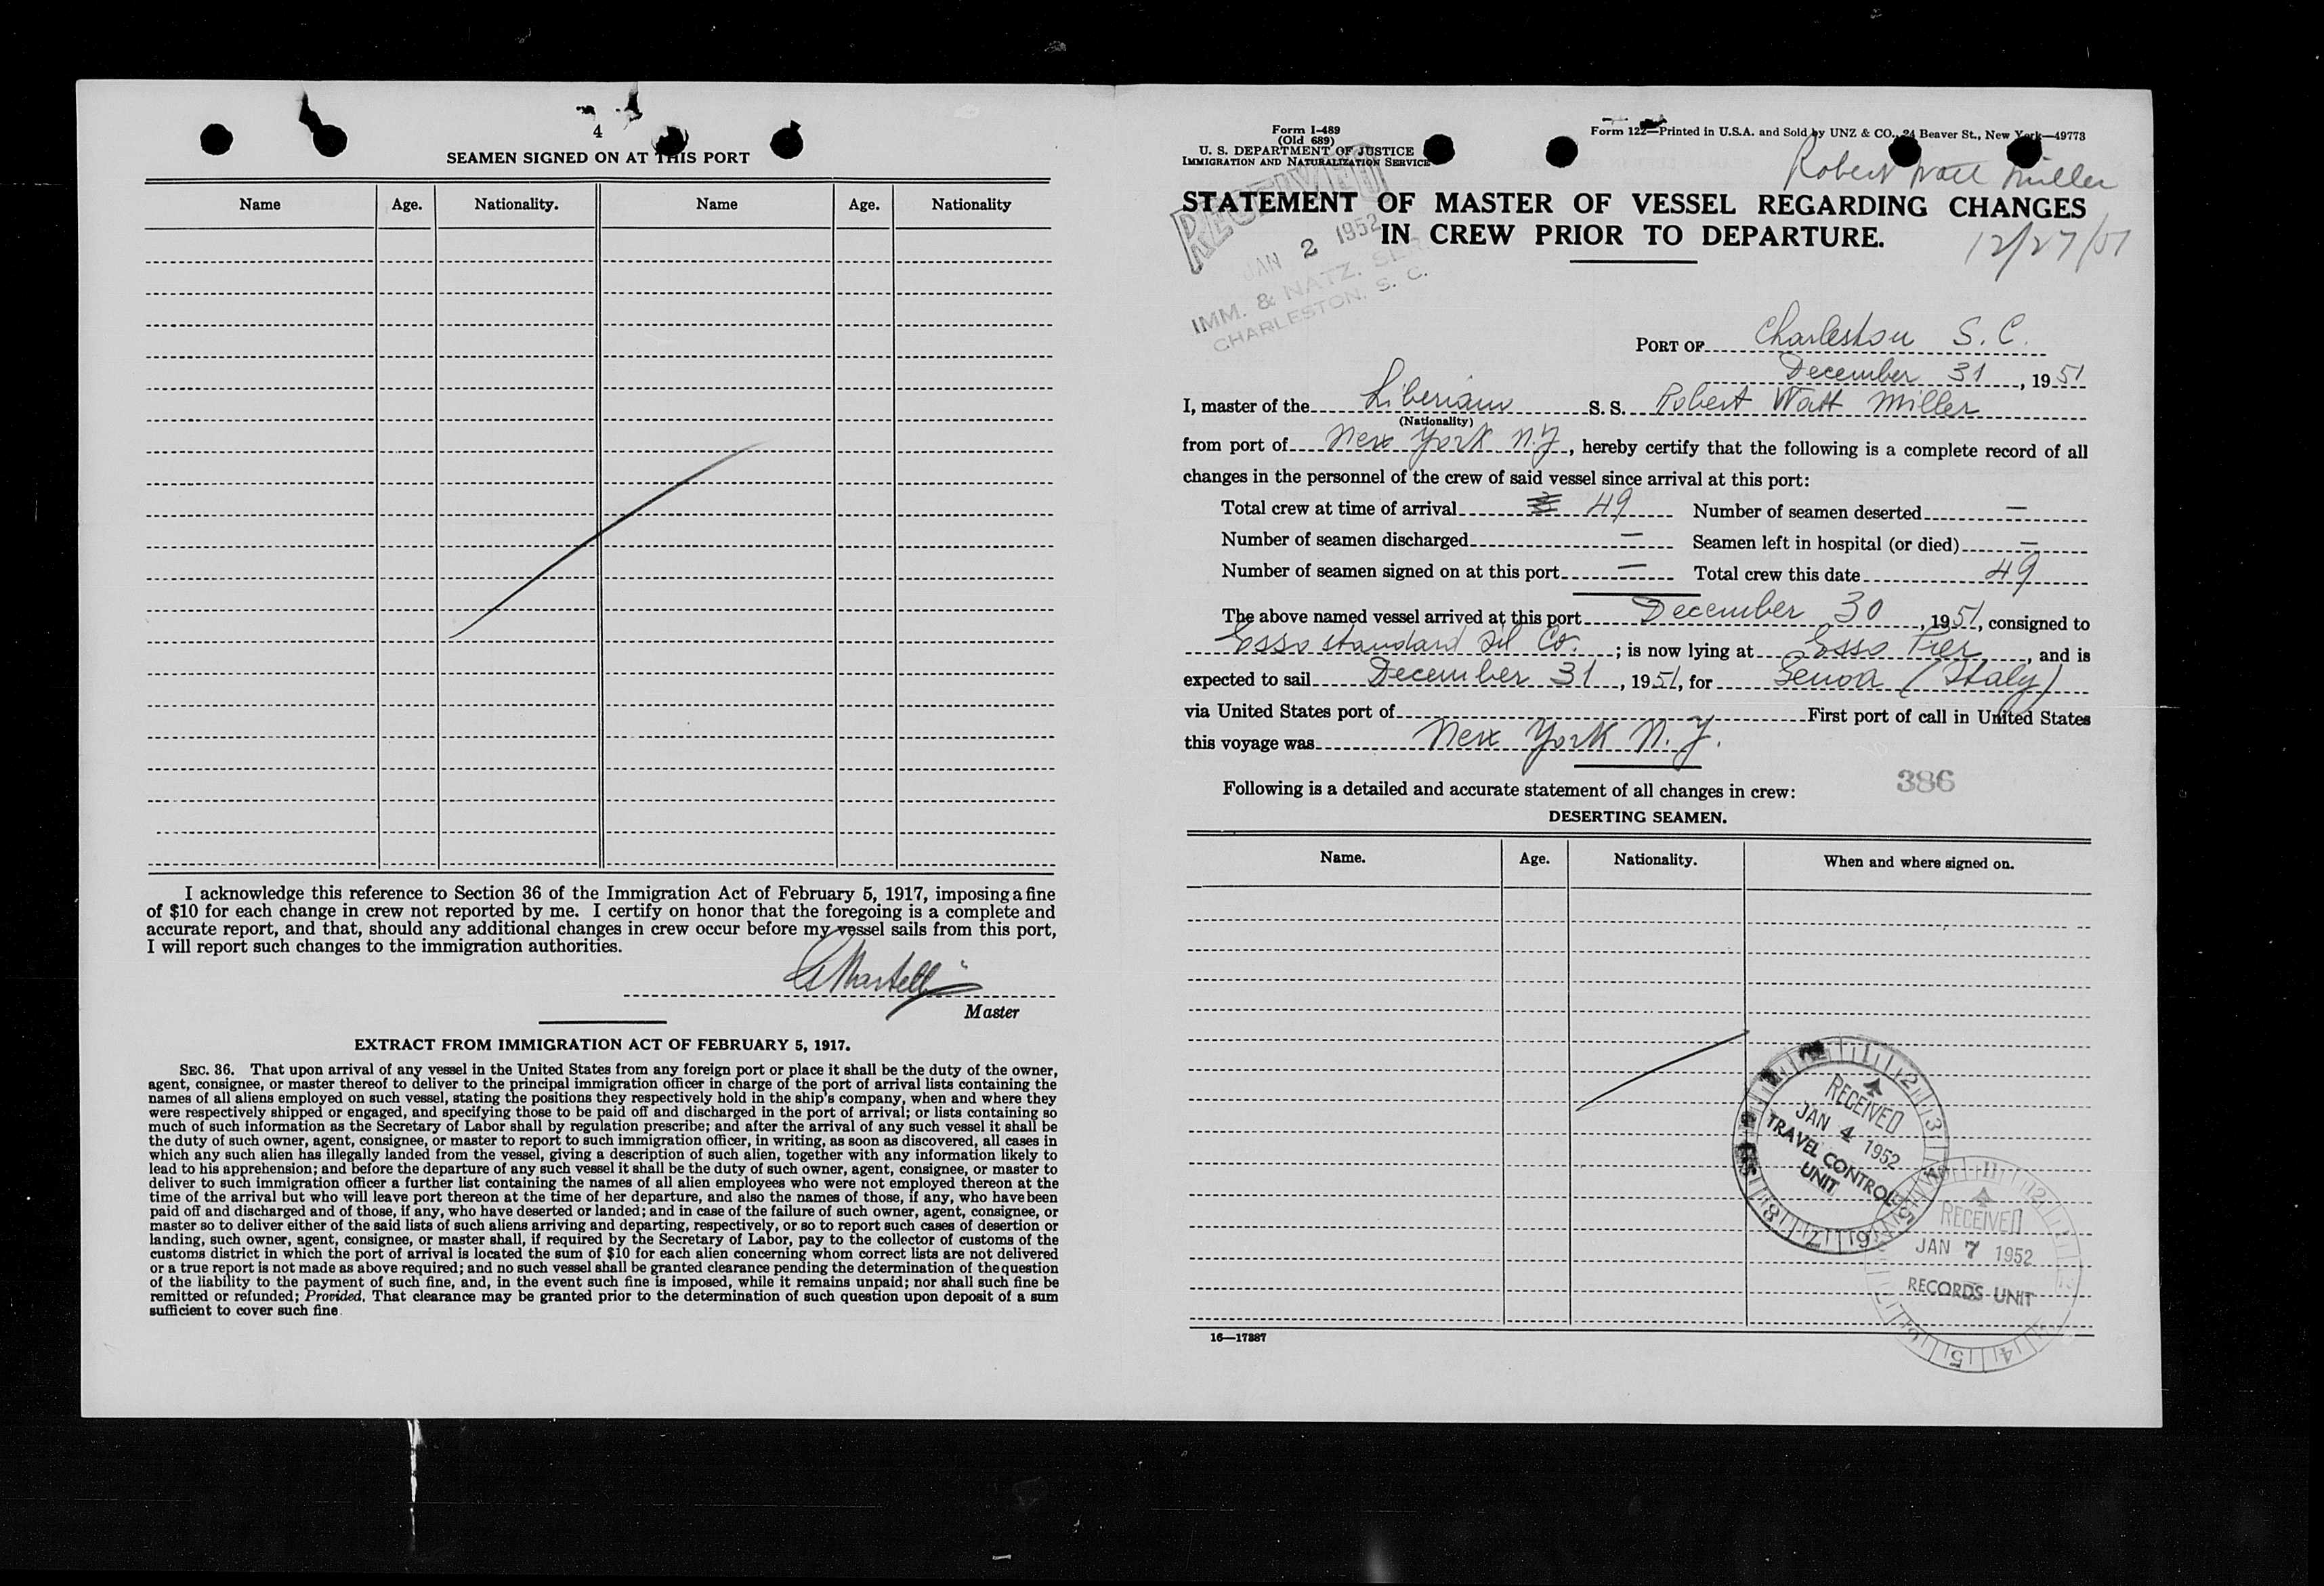 4
SEAMEN SIGNED ON AT THIS PORT
Name Age. Nationality. Name Age. Nationality
I acknowledge this reference to Section 36 of the Immigration Act of February 5, 1917, imposing a fine
of $10 for each change in crew not reported by me. I certify on honor that the foregoing is a complete and
accurate report, and that, should any additional changes in crew occur before my vessel sails from this port,
I will report such changes to the immigration authorities.
G Martelli
Master
EXTRACT FROM IMMIGRATION ACT OF FEBRUARY 5, 1917.
SEC. 36. That upon arrival of any vessel in the United States from any foreign port or place it shall be the duty of the owner,
agent, consignee, or master thereof to deliver to the principal immigration officer in charge of the port of arrival lists containing the
names of all aliens employed on such vessel, stating the positions they respectively hold in the ship's company, when and where they
were respectively shipped or engaged, and specifying those to be paid off and discharged in the port of arrival; or lists containing so
much of such information as the Secretary of Labor shall by regulation prescribe; and after the arrival of any such vessel it shall be
the duty of such owner, agent, consignee, or master to report to such immigration officer, in writing, as soon as discovered, all cases in
which any such alien has illegally landed from the vessel, giving a description of such alien, together with any information likely to
lead to his apprehension; and before the departure of any such vessel it shall be the duty of such owner, agent, consignee, or master to
deliver to such immigration officer a further list containing the names of all alien employees who were not employed thereon at the
time of the arrival but who will leave port thereon at the time of her departure, and also the names of those, if any, who have been
paid off and discharged and of those, if any, who have deserted or landed; and in case of the failure of such owner, agent, consignee, or
master so to deliver either of the said lists of such aliens arriving and departing, respectively, or so to report such cases of desertion or
landing, such owner, agent, consignee, or master shall, if required by the Secretary of Labor, pay to the collector of customs of the
customs district in which the port of arrival is located the sum of $10 for each alien concerning whom correct lists are not delivered
or a true report is not made as above required; and no such vessel shall be granted clearance pending the determination of the question
of the liability to the payment of such fine, and, in the event such fine is imposed, while it remains unpaid; nor shall such fine be
remitted or refunded; Provided, That clearance may be granted prior to the determination of such question upon deposit of a sum
sufficient to cover such fine.
Form I-489
(Old 689)
U. S. DEPARTMENT OF JUSTICE
IMMIGRATION AND NATURALIZATION SERVICE
Form 122—Printed in U.S.A. and Sold by UNZ & CO., 24 Beaver St., New York—49773
Robert Watt Miller
STATEMENT OF MASTER OF VESSEL REGARDING CHANGES
IN CREW PRIOR TO DEPARTURE.
12/27/51
RECEIVED
JAN 2 1952
IMM. & NATZ. SER
CHARLESTON, S. C.
PORT OF Charleston S. C.
December 31, 1951
I, master of the Liberian S. S. Robert Watt Miller
(Nationality)
from port of New York N.Y, hereby certify that the following is a complete record of all
changes in the personnel of the crew of said vessel since arrival at this port:
Total crew at time of arrival 49 Number of seamen deserted —
Number of seamen discharged — Seamen left in hospital (or died) —
Number of seamen signed on at this port — Total crew this date 49
The above named vessel arrived at this port December 30, 1951, consigned to
Esso Standard Oil Co. ; is now lying at Esso Pier, and is
expected to sail December 31, 1951, for Genoa (Italy)
via United States port of First port of call in United States
this voyage was New York N.Y.
386
Following is a detailed and accurate statement of all changes in crew:
DESERTING SEAMEN.
Name. Age. Nationality. When and where signed on.
RECEIVED
JAN 4 1952
TRAVEL CONTROL
UNIT
RECEIVED
JAN 7 1952
RECORDS UNIT
16—17387